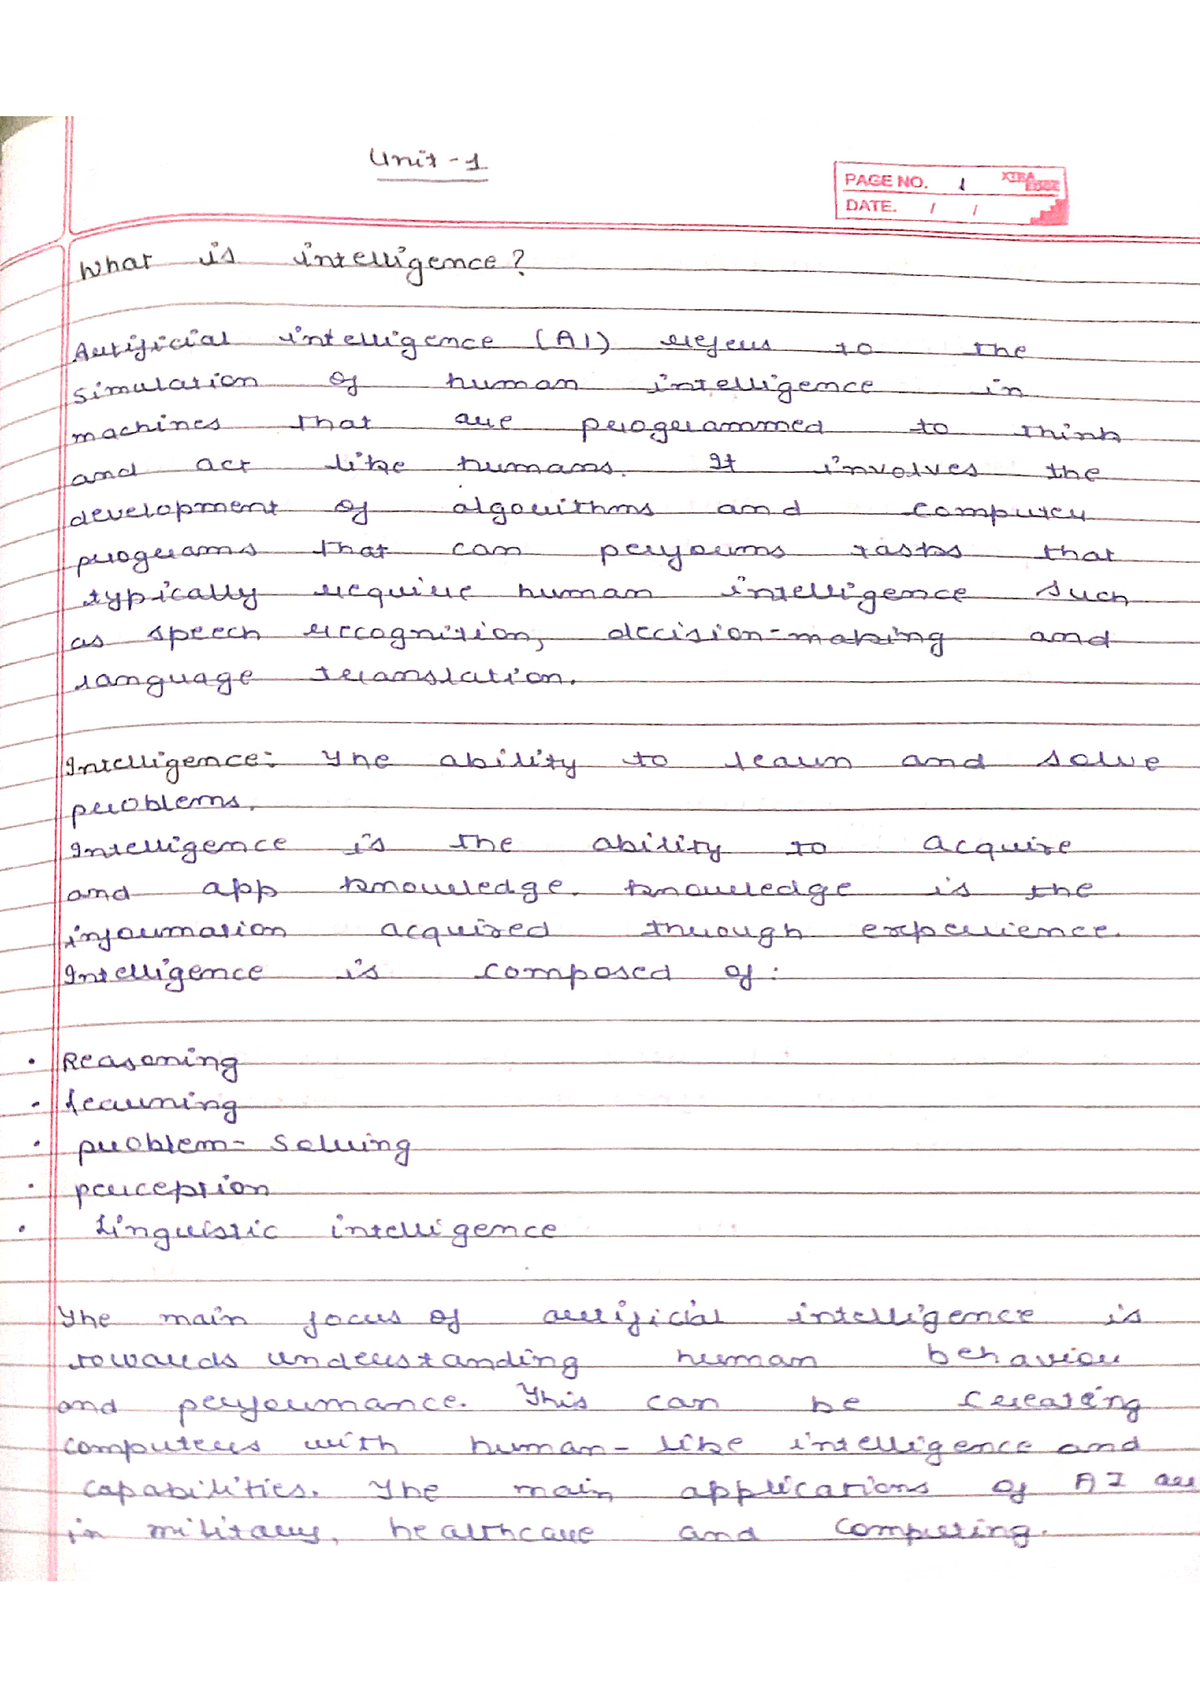 Unit - 1
PAGE NO. 1 XTRA EDGE
DATE. / /
What is intelligence?
Artificial intelligence (AI) refers to the
simulation of human intelligence in
machines that are programmed to think
and act like humans. It involves the
development of algorithms and computer
programs that can performs tasks that
typically require human intelligence such
as speech recognition, decision-making and
language translation.
Intelligence: The ability to learn and solve
problems.
Intelligence is the ability to acquire
and app knowledge. knowledge is the
information acquired through experience.
Intelligence is composed of:
• Reasoning
• Learning
• problem- Solving
• perception
• Linguistic intelligence
The main focus of artificial intelligence is
towards understanding human behaviour
and performance. This can be creating
computers with human-like intelligence and
capabilities. The main applications of AI are
in military, healthcare and computing.